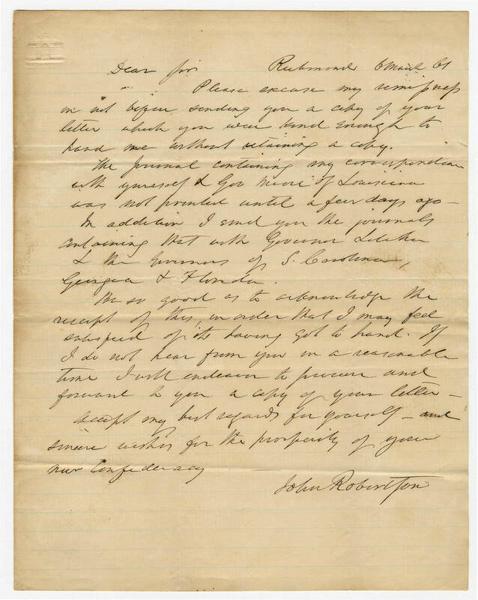 Dear Sir Richmond 6 March 61
Please excuse my remissness
in not before sending you a copy of your
letter which you were kind enough to
hand me without retaining a copy.
The Journal containing my correspondence
with yourself & Gov Moore of Louisiana
was not printed until a few days ago—
In addition I send you the journals
containing that with Governor Letcher
& the Governors of S. Carolina,
Georgia & Florida.
Be so good as to acknowledge the
receipt of this, in order that I may feel
satisfied of its having got to hand. If
I do not hear from you in a reasonable
time I will endeavor to procure and
forward to you a copy of your letter—
Accept my best regards for yourself—and
sincere wishes for the prosperity of your
new Confederacy
John Robertson